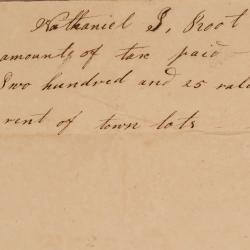 Nathaniel S, Root
amounts of tax paid
Two hundred and 25
rent of town lots